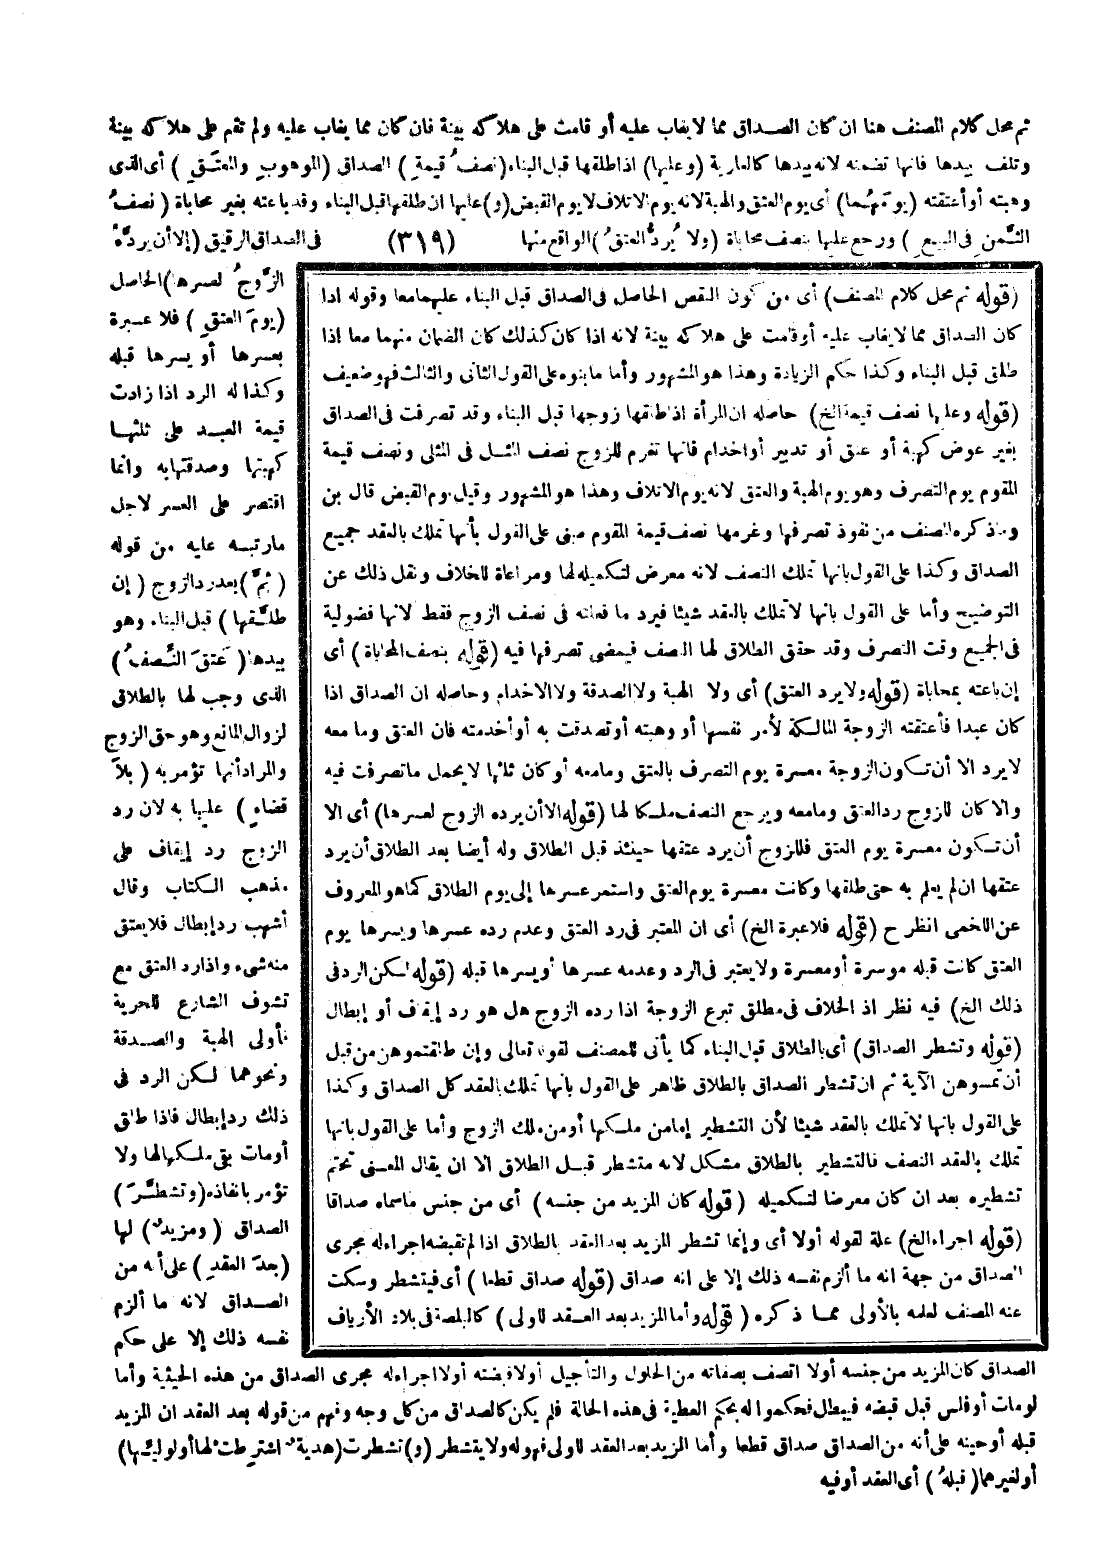 ثم محل كلام المصنف هنا ان كان الصداق مما لا يغاب عليه أو قامت على هلاكه بينة فان كان مما يغاب عليه ولم تقم على هلاكه بينة
وتلف بيدها فانها تضمنه لانه بيدها كالعارية (وعليها) اذا طلقها قبل البناء (نصفُ قيمةِ) الصداق (الموهوبِ والمعتَقِ) أى الذى
وهبته أو أعتقته (يومَهُما) أى يوم العتق والهبة لانه يوم الاتلاف لا يوم القبض (و) عليها ان طلقها قبل البناء وقد باعته بغير محاباة (نصفُ
الثَّمنِ فى البيعِ) ورجع عليها بنصف محاباة (ولا يُردُّ العتقُ) الواقع منها (٣١٩) فى الصداق الرقيق (إلا أن يردَّهُ
الزَّوجُ لعسرها) الحاصل
(يومَ العتقِ) فلا عبرة
بعسرها أو يسرها قبله
وكذا له الرد اذا زادت
قيمة العبد على ثلثها
كهبتها وصدقتها به وانما
اقتصر على العسر لاجل
ما رتبه عليه من قوله
(ثمَّ) بعد رد الزوج (إن
طلَّقها) قبل البناء وهو
بيدها (عَتقَ النِّصفُ)
الذى وجب لها بالطلاق
لزوال المانع وهو حق الزوج
والمراد أنها تؤمر به (بلاَ
قضاءٍ) عليها به لان رد
الزوج رد إيقاف على
مذهب الكتاب وقال
أشهب رد إبطال فلا يعتق
منه شىء واذا رد العتق مع
تشوف الشارع للحرية
فأولى الهبة والصدقة
ونحوهما لكن الرد فى
ذلك رد إبطال فاذا طلق
أو مات بقى ملكها لها ولا
تؤمر بانفاذه (وتشطَّرَ)
الصداق (ومزيدٌ) لها
(بعدَ العقدِ) على أنه من
الصداق لانه ما ألزم
نفسه ذلك إلا على حكم
(قوله ثم محل كلام المصنف) أى من كون النقص الحاصل فى الصداق قبل البناء عليهما معا وقوله اذا
كان الصداق مما لا يغاب عليه أو قامت على هلاكه بينة لانه اذا كان كذلك كان الضمان منهما معا اذا
طلق قبل البناء وكذا حكم الزيادة وهذا هو المشهور وأما ما بنوه على القول الثانى والثالث فهو ضعيف
(قوله وعليها نصف قيمة الخ) حاصله ان المرأة اذا طلقها زوجها قبل البناء وقد تصرفت فى الصداق
بغير عوض كهبة أو عتق أو تدبير أو اخدام فانها تغرم للزوج نصف المثل فى المثلى ونصف قيمة
المقوم يوم التصرف وهو يوم الهبة والعتق لانه يوم الاتلاف وهذا هو المشهور وقيل يوم القبض قال بن
وما ذكره المصنف من نفوذ تصرفها وغرمها نصف قيمة المقوم مبنى على القول بأنها تملك بالعقد جميع
الصداق وكذا على القول بانها تملك النصف لانه معرض لتكميله لها ومراعاة للخلاف ونقل ذلك عن
التوضيح وأما على القول بانها لا تملك بالعقد شيئا فيرد ما فعلته فى نصف الزوج فقط لانها فضولية
فى الجميع وقت التصرف وقد حقق الطلاق لها النصف فيمضى تصرفها فيه (قوله بنصف المحاباة) أى
إن باعته بمحاباة (قوله ولا يرد العتق) أى ولا الهبة ولا الصدقة ولا الاخدام وحاصله ان الصداق اذا
كان عبدا فأعتقته الزوجة المالكة لأمر نفسها أو وهبته أو تصدقت به أو أخدمته فان العتق وما معه
لا يرد الا أن تكون الزوجة معسرة يوم التصرف بالعتق وما معه أو كان ثلثها لا يحمل ما تصرفت فيه
والا كان للزوج رد العتق وما معه ويرجع النصف ملكا لها (قوله الا أن يرده الزوج لعسرها) أى الا
أن تكون معسرة يوم العتق فللزوج أن يرد عتقها حينئذ قبل الطلاق وله أيضا بعد الطلاق أن يرد
عتقها ان لم يعلم به حتى طلقها وكانت معسرة يوم العتق واستمر عسرها إلى يوم الطلاق كما هو المعروف
عن اللخمى انظر ح (قوله فلا عبرة الخ) أى ان المعتبر فى رد العتق وعدم رده عسرها ويسرها يوم
العتق كانت قبله موسرة أو معسرة ولا يعتبر فى الرد وعدمه عسرها أو يسرها قبله (قوله لكن الرد فى
ذلك الخ) فيه نظر اذ الخلاف فى مطلق تبرع الزوجة اذا رده الزوج هل هو رد إيقاف أو إبطال
(قوله وتشطر الصداق) أى بالطلاق قبل البناء كما يأتى للمصنف لقوله تعالى وإن طلقتموهن من قبل
أن تمسوهن الآية ثم ان تشطر الصداق بالطلاق ظاهر على القول بانها تملك بالعقد كل الصداق وكذا
على القول بانها لا تملك بالعقد شيئا لأن التشطير إما من ملكها أو من ملك الزوج وأما على القول بانها
تملك بالعقد النصف فالتشطير بالطلاق مشكل لانه متشطر قبل الطلاق الا ان يقال المعنى تحتم
تشطيره بعد ان كان معرضا لتكميله (قوله كان المزيد من جنسه) أى من جنس ما سماه صداقا
(قوله اجراء الخ) علة لقوله أولا أى وإنما تشطر المزيد بعد العقد بالطلاق اذا لم تقبضه اجراء له مجرى
الصداق من جهة انه ما ألزم نفسه ذلك إلا على انه صداق (قوله صداق قطعا) أى فيتشطر وسكت
عنه المصنف لعلمه بالأولى مما ذكره (قوله وأما المزيد بعد العقد للولى) كالبلصة فى بلاد الأرياف
الصداق كان المزيد من جنسه أولا اتصف بصفاته من الحلول والتأجيل أولا قبضته أولا اجراء له مجرى الصداق من هذه الحيثية وأما
لو مات أو فلس قبل قبضه فيبطل فحكموا له بحكم العطية فى هذه الحالة فلم يكن كالصداق من كل وجه وفهم من قوله بعد العقد ان المزيد
قبله أو حينه على أنه من الصداق صداق قطعا وأما المزيد بعد العقد للولى فهو له ولا يتشطر (و) تشطرت (هديةٌ اشترطت لها أو لوليِّها)
أو لغيرهما (قبلهُ) أى العقد أو فيه